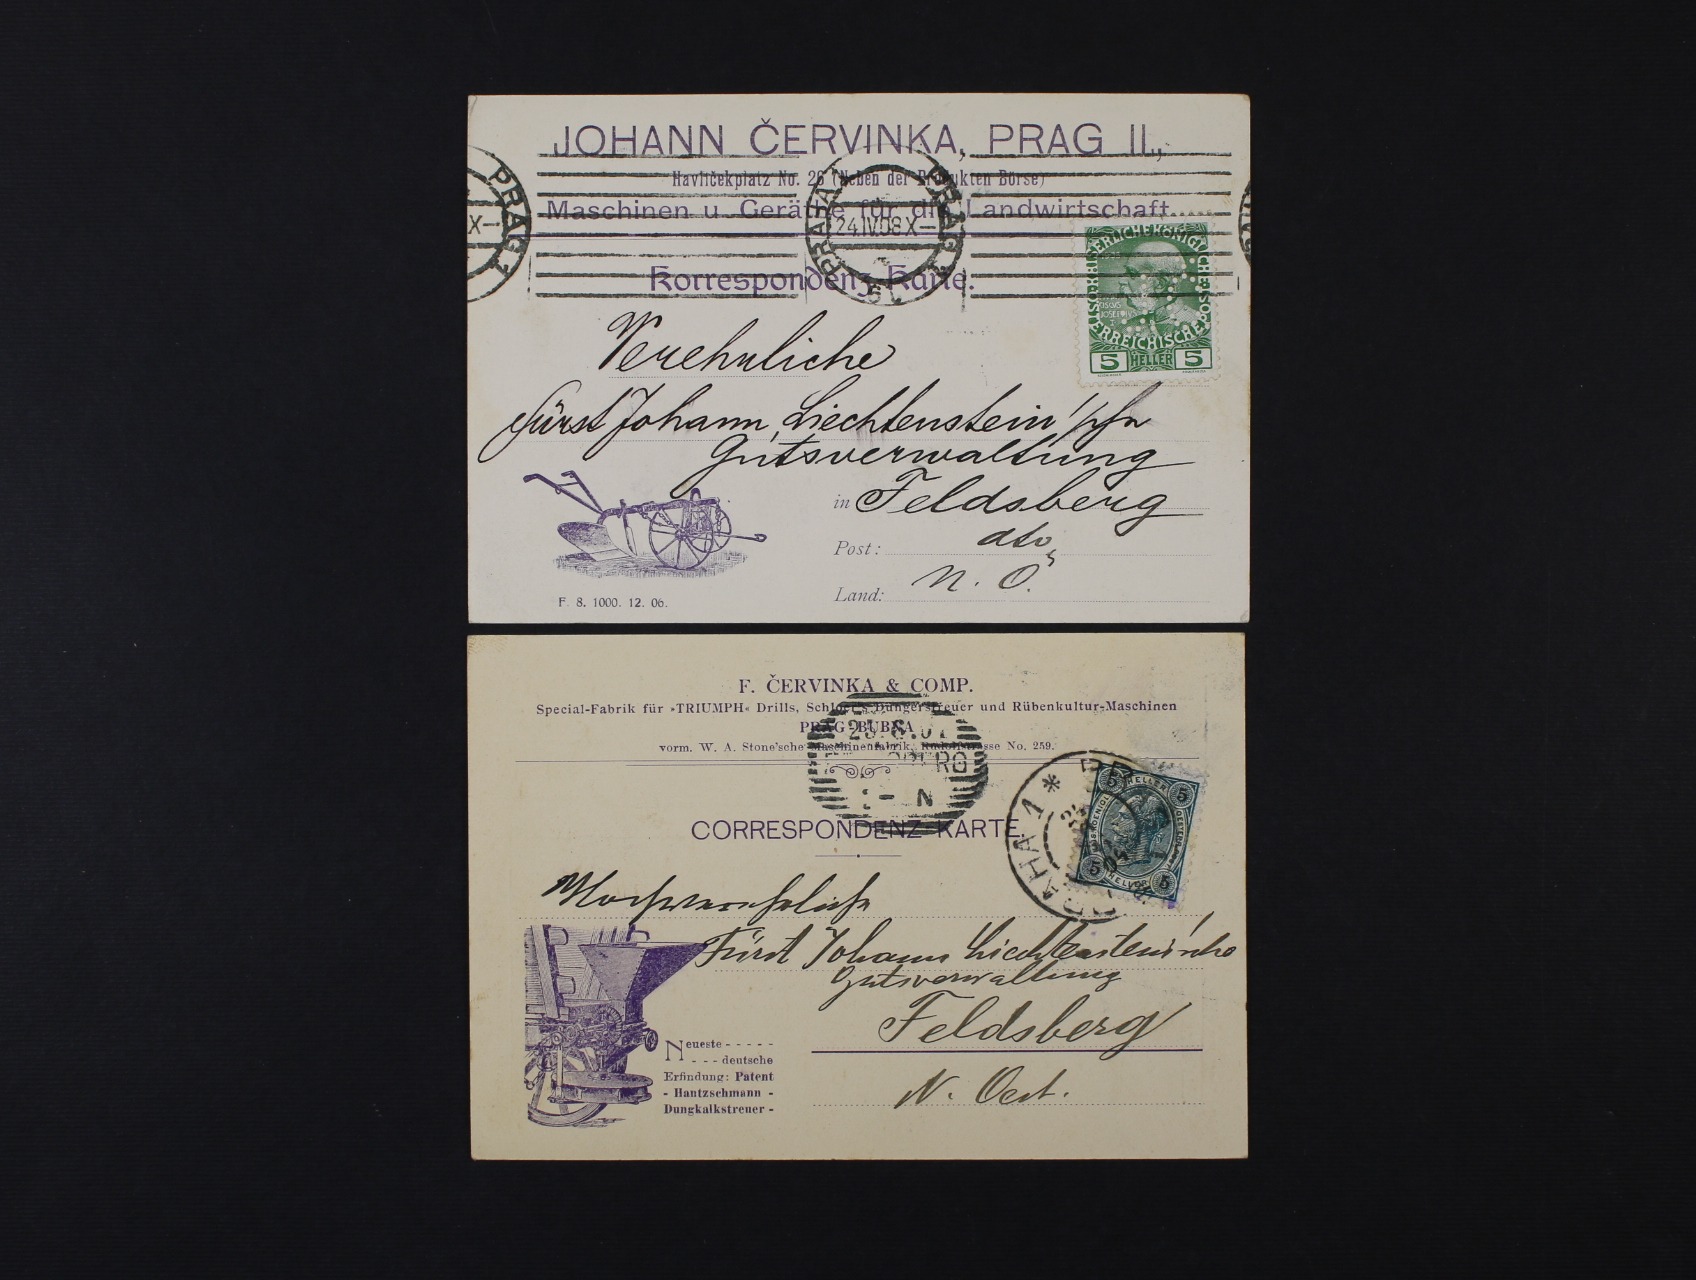 JOHANN ČERVINKA, PRAG II.,
Havlíčekplatz No. 26 (Neben der Produkten Börse)
Maschinen u. Geräthe für die Landwirtschaft.
PRAG 1
X–
PRAHA PRAG 1
24.IV.08 X–
Korrespondenz-Karte.
KAISERLICHE KÖNIGLICHE ÖSTERREICHISCHE POST
5 HELLER 5
Verehrliche
Fürst Johann Liechtenstein'sche
Gutsverwaltung
in Feldsberg
Post: dto
Land: N. Ö.
F. 8. 1000. 12. 06.
F. ČERVINKA & COMP.
Special-Fabrik für »TRIUMPH« Drills, Schlör's Düngerstreuer und Rübenkultur-Maschinen
PRAG-BUBNA
vorm. W. A. Stone'sche Maschinenfabrik, Rudolfstrasse No. 259.
CORRESPONDENZ-KARTE.
PRAHA 1
5 HELLER 5
5 HELLER 5
Hochverehrliche
Fürst Johann Liechtenstein'sche
Gutsverwaltung
Feldsberg
N. Oest.
Neueste - - - - -
- - - deutsche
Erfindung: Patent
- Hantzschmann -
Dungkalkstreuer -